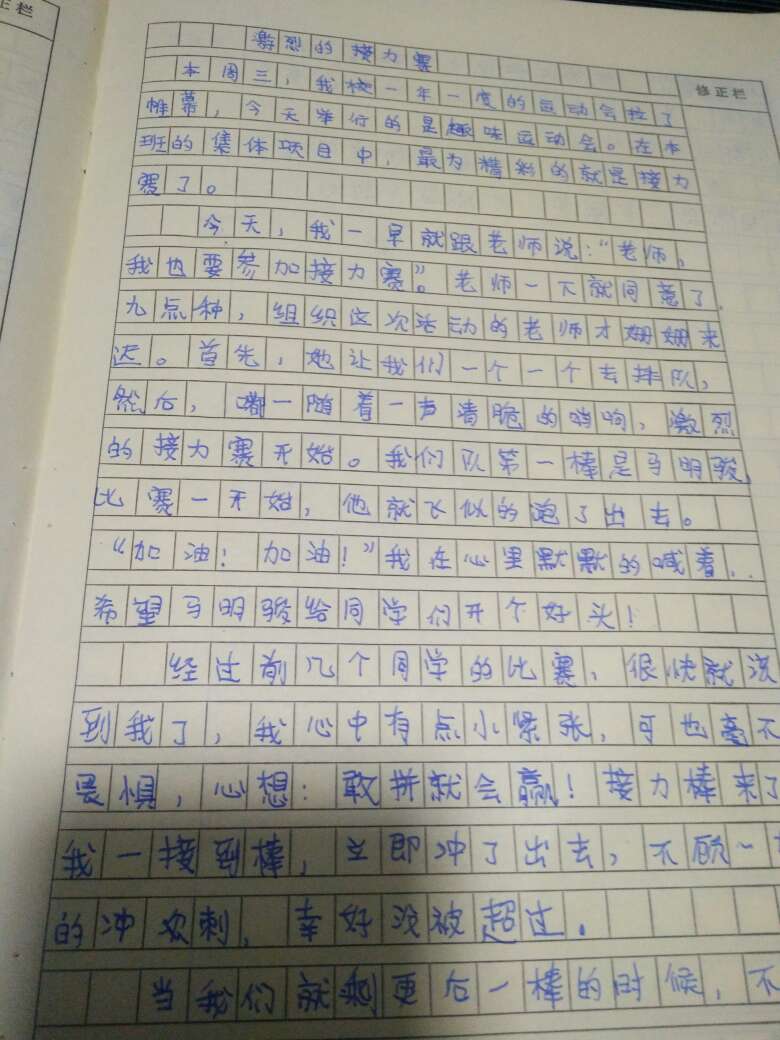 正栏
修正栏
激烈的接力赛
本周三，我校一年一度的运动会拉了
帷幕，今天举行的是趣味运动会。在本
班的集体项目中，最为精彩的就是接力
赛了。
今天，我一早就跟老师说：“老师，
我也要参加接力赛”。老师一下就同意了，
九点种，组织这次活动的老师才姗姗来
迟。首先，她让我们一个一个去排队，
然后，嘟一随着一声清脆的哨响，激烈
的接力赛开始。我们队第一棒是马明骏，
比赛一开始，他就飞似的跑了出去。
“加油！加油！”我在心里默默的喊着，
希望马明骏给同学们开个好头！
经过前几个同学的比赛，很快就
到我了，我心中有点小紧张，可也毫不
畏惧，心想：敢拼就会赢！接力棒来了
我一接到棒，立即冲了出去，不顾一
的冲刺，幸好没被超过。
当我们就剩更后一棒的时候，不